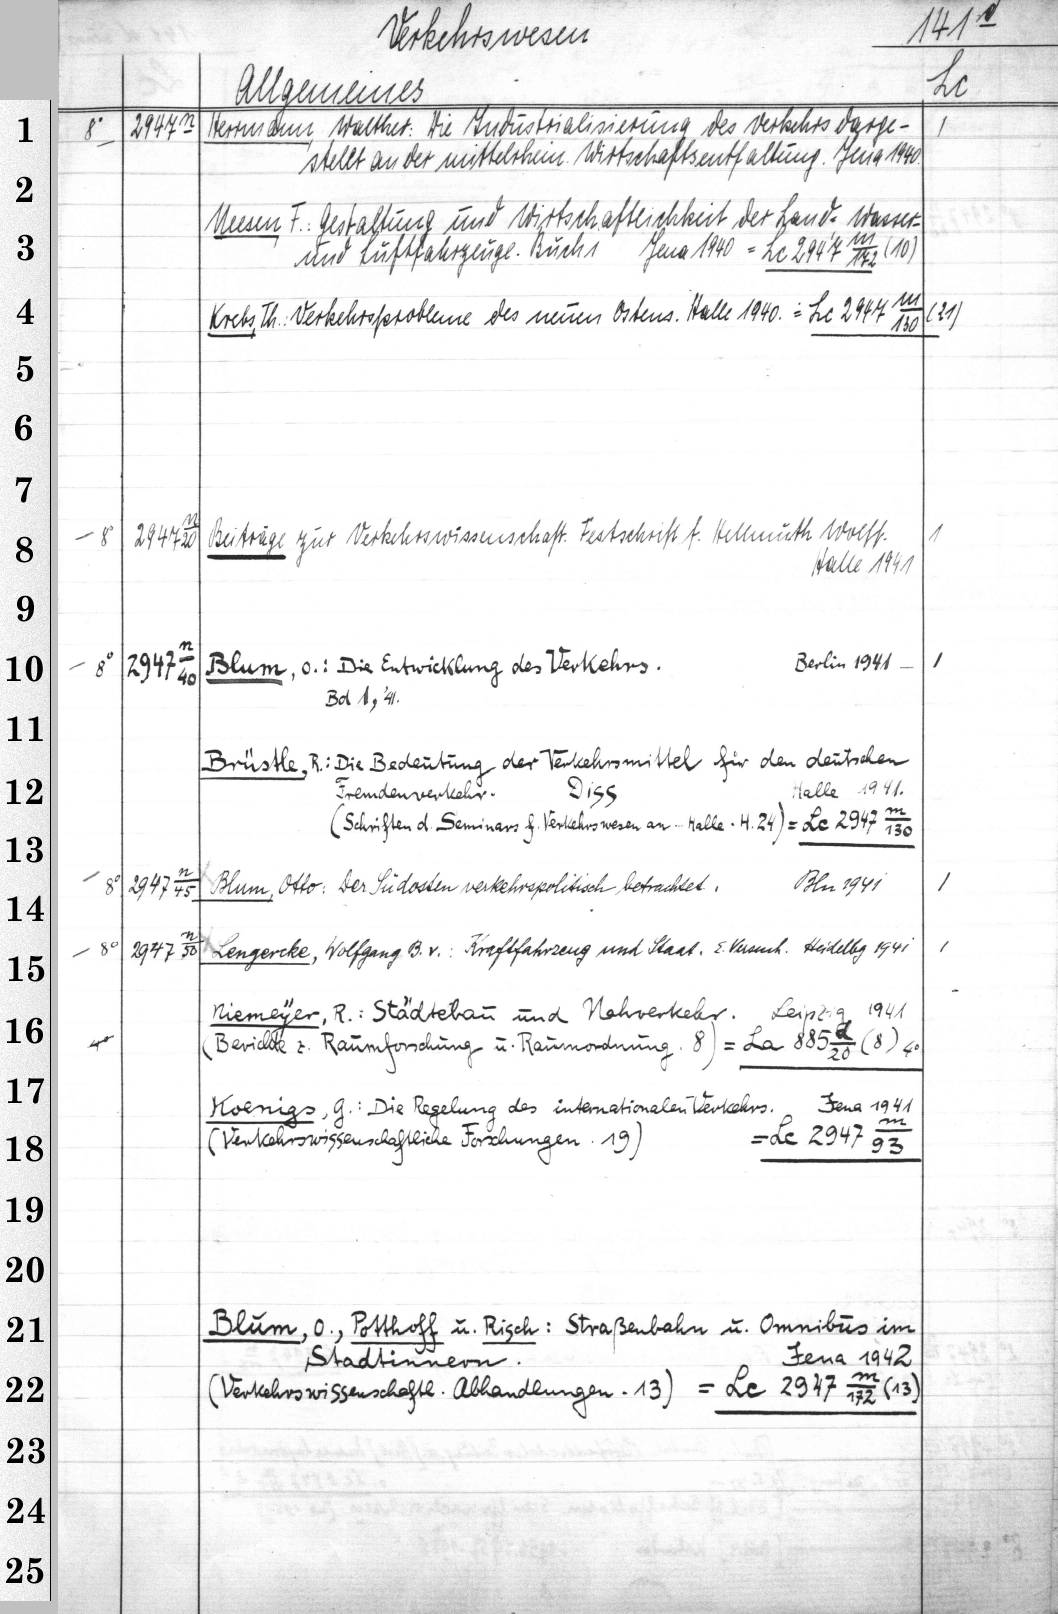 Verkehrswesen 141 d
Allgemeines Lc
1 8° 2947 n Herrmann, Walther: Die Industrialisierung des Verkehrs darge- 1
stellt an der mittelrhein. Wirtschaftsentfaltung. Jena 1940.
2
Meesen, F.: Gestaltung und Wirtschaftlichkeit der Land- Wasser-
3 und Luftfahrzeuge. Buch 1 Jena 1940 = Lc 2947 m/172 (10)
4 Krebs, Th.: Verkehrsprobleme des neuen Ostens. Halle 1940. = Lc 2947 m/130 (21)
5
6
7
8 – 8° 2947 n/20 Beiträge zur Verkehrswissenschaft. Festschrift f. Hellmuth Wolff. 1
Halle 1941
9
10 – 8° 2947 n/40 Blum, O.: Die Entwicklung des Verkehrs. Berlin 1941 – 1
Bd 1, '41.
11
Brüstle, R.: Die Bedeutung der Verkehrsmittel für den deutschen
12 Fremdenverkehr. Diss Halle 1941.
(Schriften d. Seminars f. Verkehrswesen an – Halle. H. 24) = Lc 2947 m/130
13
– 8° 2947 n/45 Blum, Otto: Der Südosten verkehrspolitisch betrachtet. Bln 1941 1
14
15 – 8° 2947 n/50 Lengercke, Wolfgang B. v.: Kraftfahrzeug und Staat. E. Versuch. Heidelbg 1941 1
Niemeÿer, R.: Städtebau und Nahverkehr. Leipzig 1941
16 4° (Berichte z. Raumforschung u. Raumordnung. 8) = La 885 d/20 (8) 4°
17
Koenigs, G.: Die Regelung des internationalen Verkehrs. Jena 1941
18 (Verkehrswissenschaftliche Forschungen. 19) = Lc 2947 m/93
19
20
21 Blum, O., Potthoff u. Risch: Straßenbahn u. Omnibus im
Stadtinnern. Jena 1942
22 (Verkehrswissenschaftl. Abhandlungen. 13) = Lc 2947 m/172 (13)
23
24
25